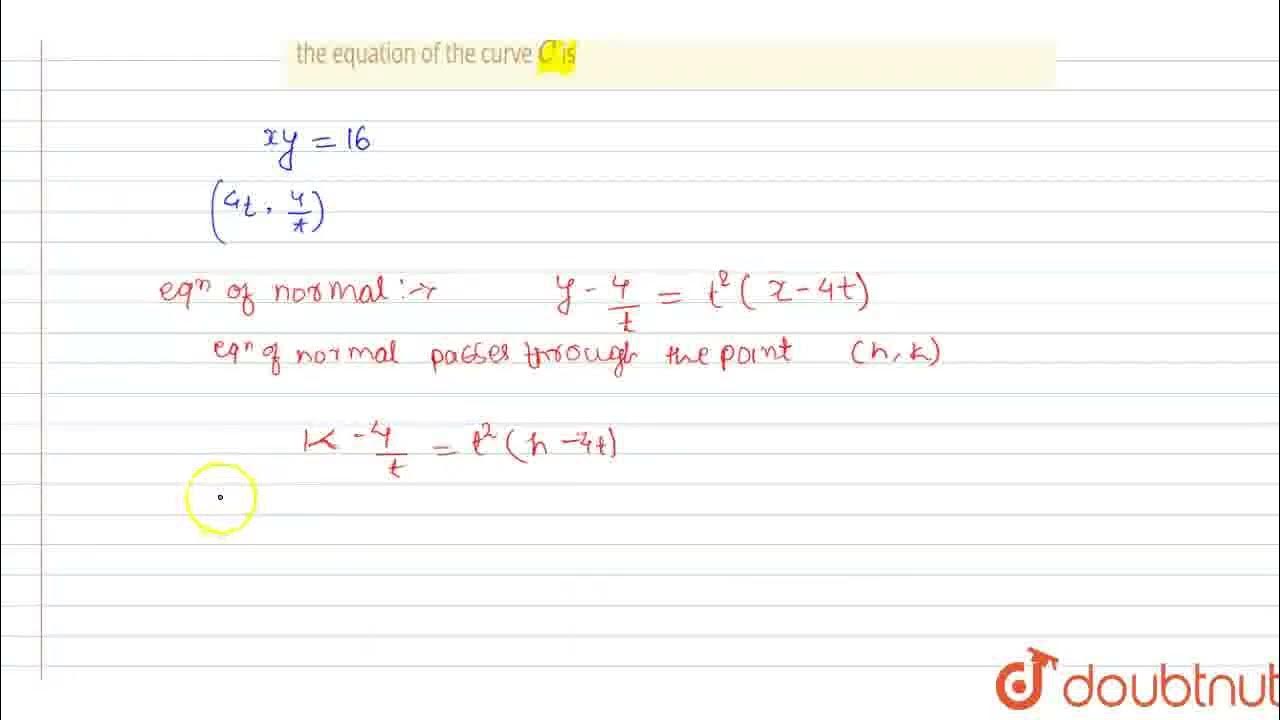 the equation of the curve C is
xy = 16
(4t, 4/t)
eqⁿ of normal :→ y - 4/t = t²(x - 4t)
eqⁿ of normal passes through the point (h, k)
k - 4/t = t²(h - 4t)
doubtnut